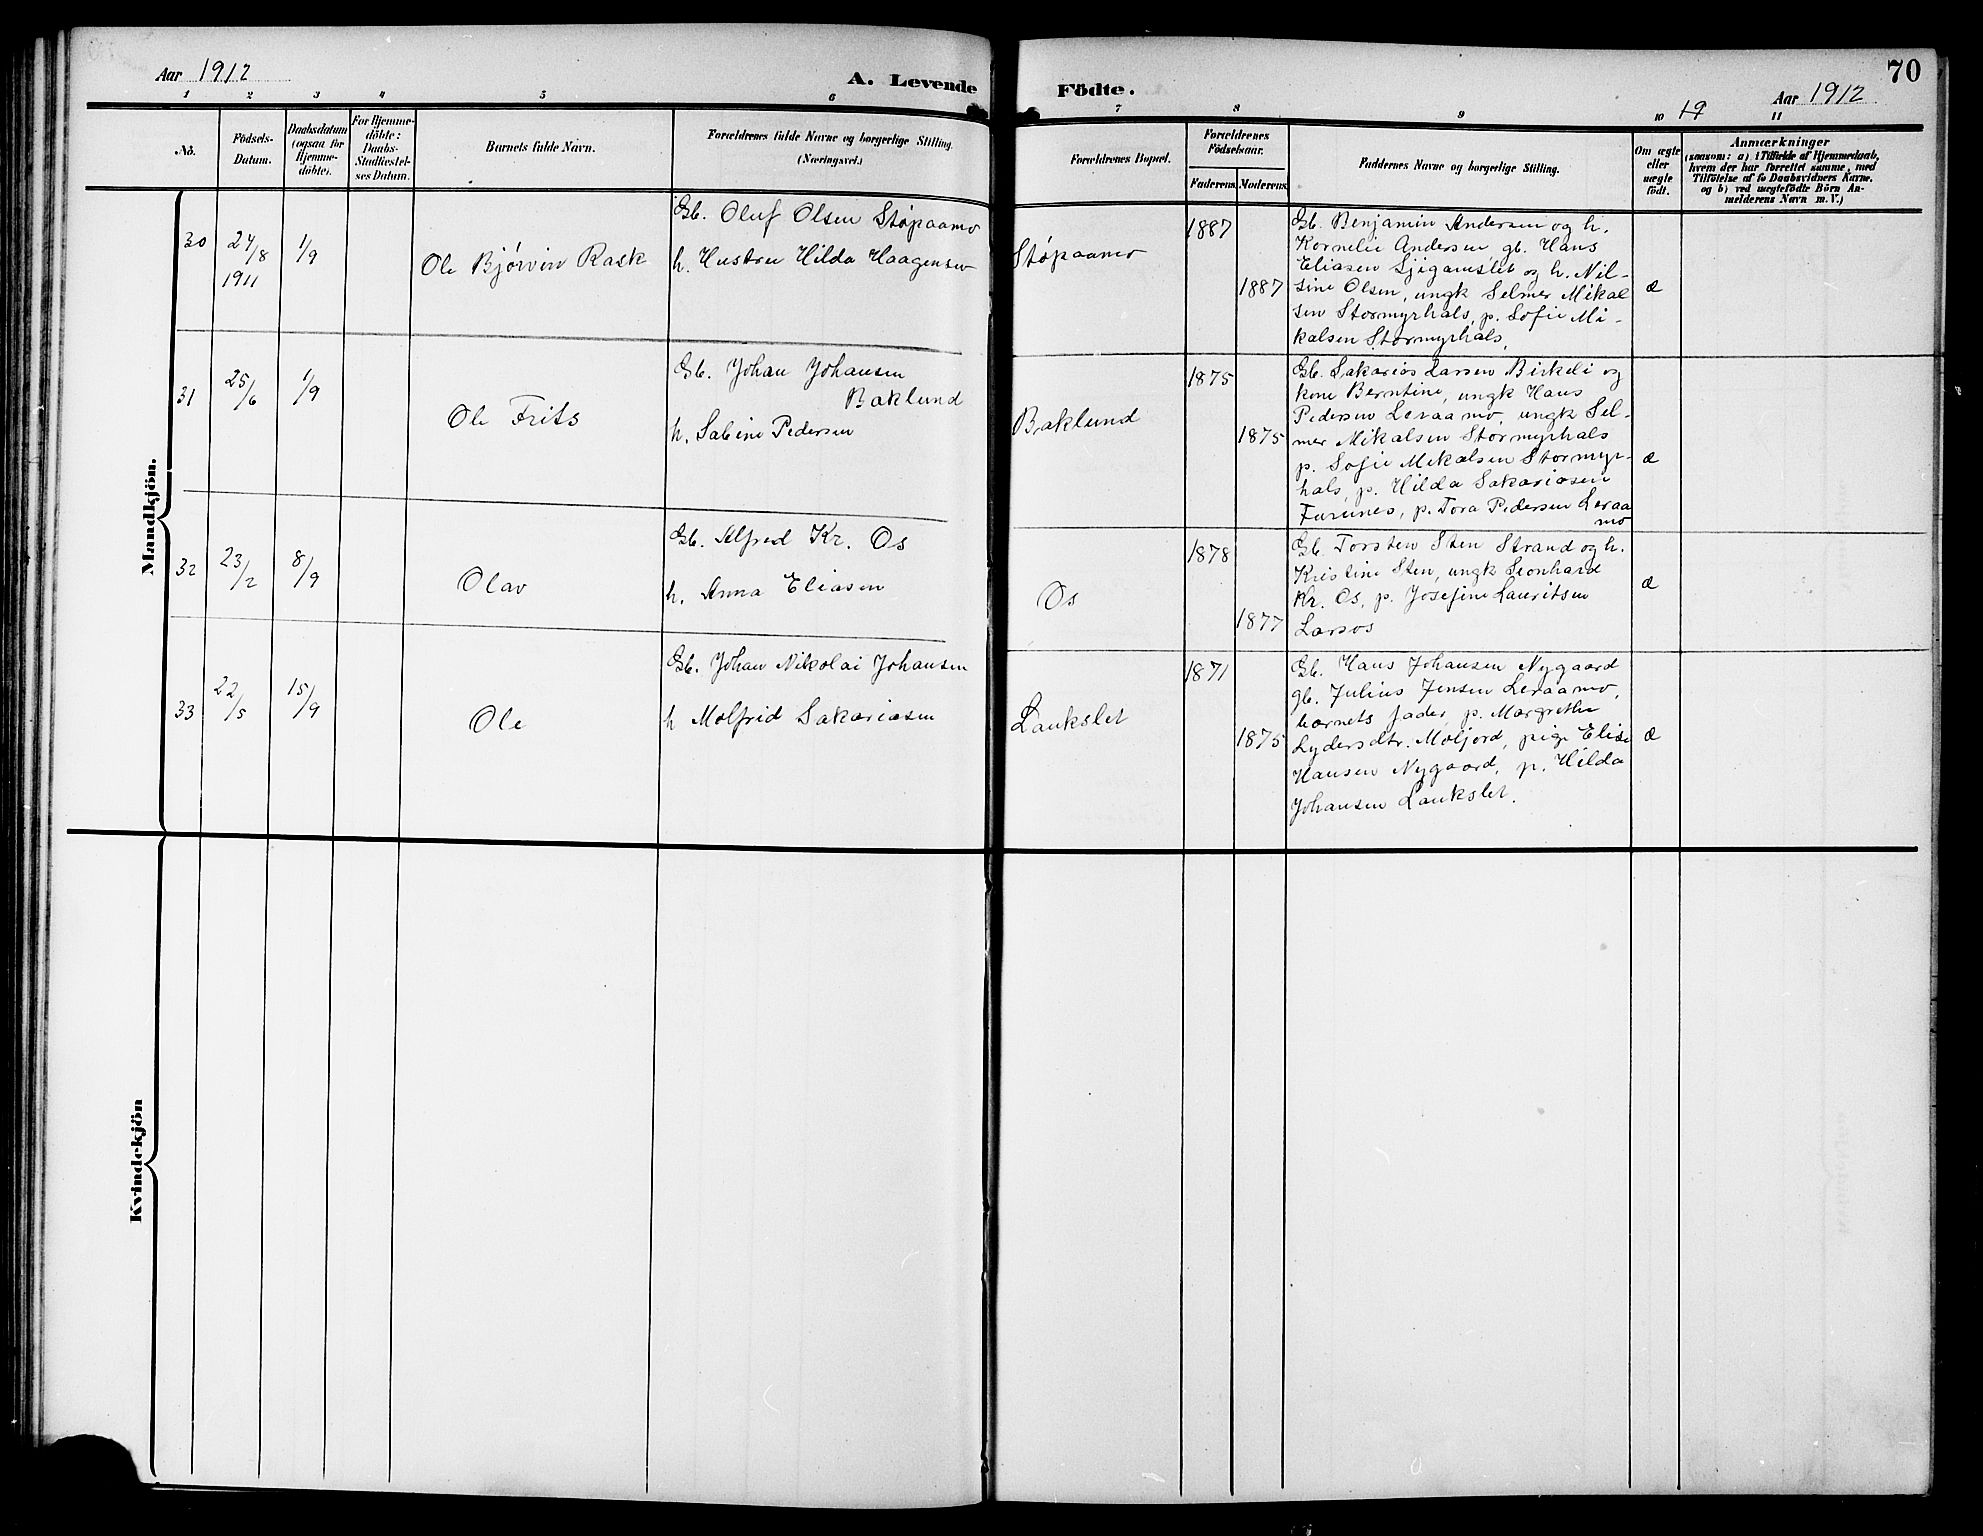 Aar 1912
A. Levende
Födte.
Aar 1912
70
19
1 2 3 4 5 6 7 8 9 10 11
No.
Födsels-
Datum.
Daabsdatum
(ogsaa for
Hjemme-
döbte).
For Hjemme-
döbte:
Daabs-
Stadfæstel-
ses Datum.
Barnets fulde Navn.
Forældrenes fulde Navne og borgerlige Stilling.
(Næringsvei.)
Forældrenes Bopæl.
Forældrenes
Födselsaar.
Faderens. Moderens.
Faddernes Navne og borgerlige Stilling.
Om ægte
eller
uægte
födt.
Anmærkninger
(saasom: a) i Tilfælde af Hjemmedaab,
hvem der har forrettet samme, med
Tilföielse af to Daabsvidners Navne,
og b) ved uægtefödte Börn An-
melderens Navn m. V.)
Mandkjön.
30
24/8
1911
1/9
Ole Bjørvin Rask
Gb. Oluf Olsen Støpaamo
h. Hustru Hilda Haagensen
Støpaamo
1887
1887
Gb. Benjamin Andersen og h.
Kornelie Andersen, gb. Hans
Eliasen og h. Nil-
sine Olsen, ungk Selmer Mikal
sen Stormyrhals, p. Sofie Mi-
kalsen Stormyrhals.
æ
31
25/6
1/9
Ole Frits
Gb. Johan Johansen
Baklund
h. Sabine Pedersen
Baklund
1875
1875
Gb. Sakarias Larsen Birkeli og
kone Berntine, ungk Hans
Pedersen Leraamo, ungk Sel-
mer Mikalsen Stormyrhals
p. Sofie Mikalsen Stormyr-
hals, p. Hilda Sakariasen
Furunes, p. Tora Pedersen Leraa
mo
æ
32
23/2
8/9
Olav
Gb. Alfred Kr. Os
h. Anna Eliasen
Os
1878
1877
Gb. Torsten Sten Strand og h.
Kristine Sten, ungk Leonhard
Kr. Os, p. Josefine Lauritsen
Larsos
æ
33
22/5
15/9
Ole
Gb. Johan Nikolai Johansen
h Molfrid Sakariasen
Laukslet
1871
1875
Gb. Hans Johansen Nygaard
gb. Julius Jensen Leraamo,
barnets fader, p. Margrethe
Lydersdtr. Moljord, pige Elise
Hansen Nygaard, p. Hilda
Johansen Laukslet.
æ
Kvindekjön